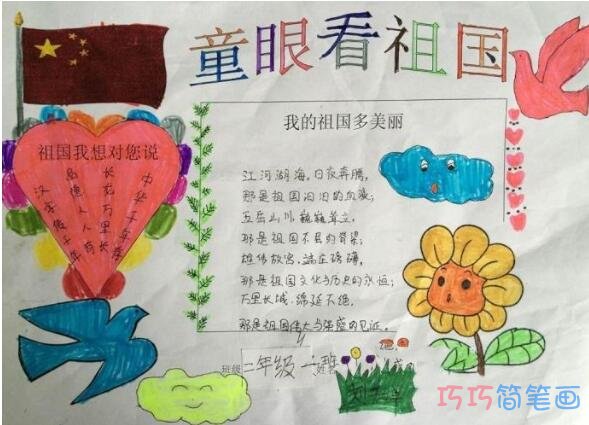 童眼看祖国
祖国我想对您说
中华千年
长龙万里长
品德人人
汉字传千年
我的祖国多美丽
江河湖海，日夜奔腾，
那是祖国汩汩的血液；
五岳山川，巍巍耸立，
那是祖国不屈的脊梁；
雄伟故宫，端庄磅礴，
那是祖国文化与历史的永恒；
万里长城，绵延不绝，
那是祖国伟大与强盛的见证。
班级 二年级 一班 姓名
巧巧简笔画